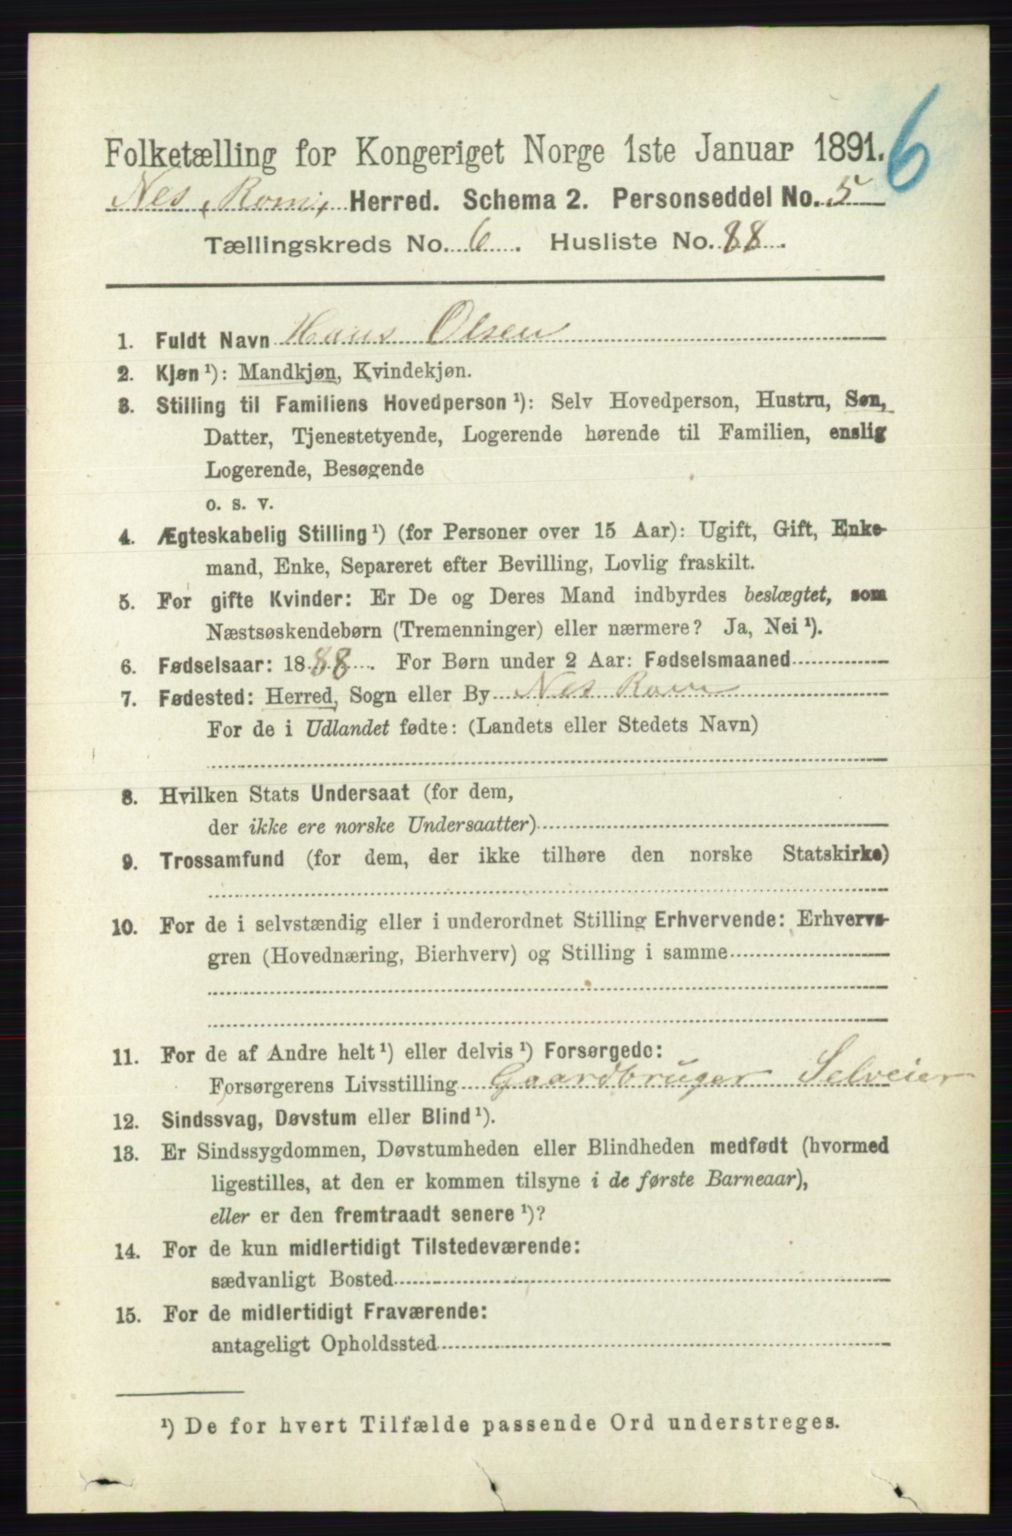 6
Folketælling for Kongeriget Norge 1ste Januar 1891.
Nes, Rom., Herred. Schema 2. Personseddel No. 5
Tællingskreds No. 6. Husliste No. 88.
1. Fuldt Navn Hans Olsen
2. Kjøn ¹): Mandkjøn, Kvindekjøn.
3. Stilling til Familiens Hovedperson ¹): Selv Hovedperson, Hustru, Søn,
Datter, Tjenestetyende, Logerende hørende til Familien, enslig
Logerende, Besøgende
o. s. v.
4. Ægteskabelig Stilling ¹) (for Personer over 15 Aar): Ugift, Gift, Enke-
mand, Enke, Separeret efter Bevilling, Lovlig fraskilt.
5. For gifte Kvinder: Er De og Deres Mand indbyrdes beslægtet, som
Næstsøskendebørn (Tremenninger) eller nærmere? Ja, Nei ¹).
6. Fødselsaar: 1888. For Børn under 2 Aar: Fødselsmaaned
7. Fødested: Herred, Sogn eller By Nes Rom
For de i Udlandet fødte: (Landets eller Stedets Navn)
8. Hvilken Stats Undersaat (for dem,
der ikke ere norske Undersaatter)
9. Trossamfund (for dem, der ikke tilhøre den norske Statskirke)
10. For de i selvstændig eller i underordnet Stilling Erhvervende: Erhvervs-
gren (Hovednæring, Bierhverv) og Stilling i samme
11. For de af Andre helt ¹) eller delvis ¹) Forsørgede:
Forsørgerens Livsstilling Gaardbruger Selveier
12. Sindssvag, Døvstum eller Blind ¹).
13. Er Sindssygdommen, Døvstumheden eller Blindheden medfødt (hvormed
ligestilles, at den er kommen tilsyne i de første Barneaar),
eller er den fremtraadt senere ¹)?
14. For de kun midlertidigt Tilstedeværende:
sædvanligt Bosted
15. For de midlertidigt Fraværende:
antageligt Opholdssted
¹) De for hvert Tilfælde passende Ord understreges.